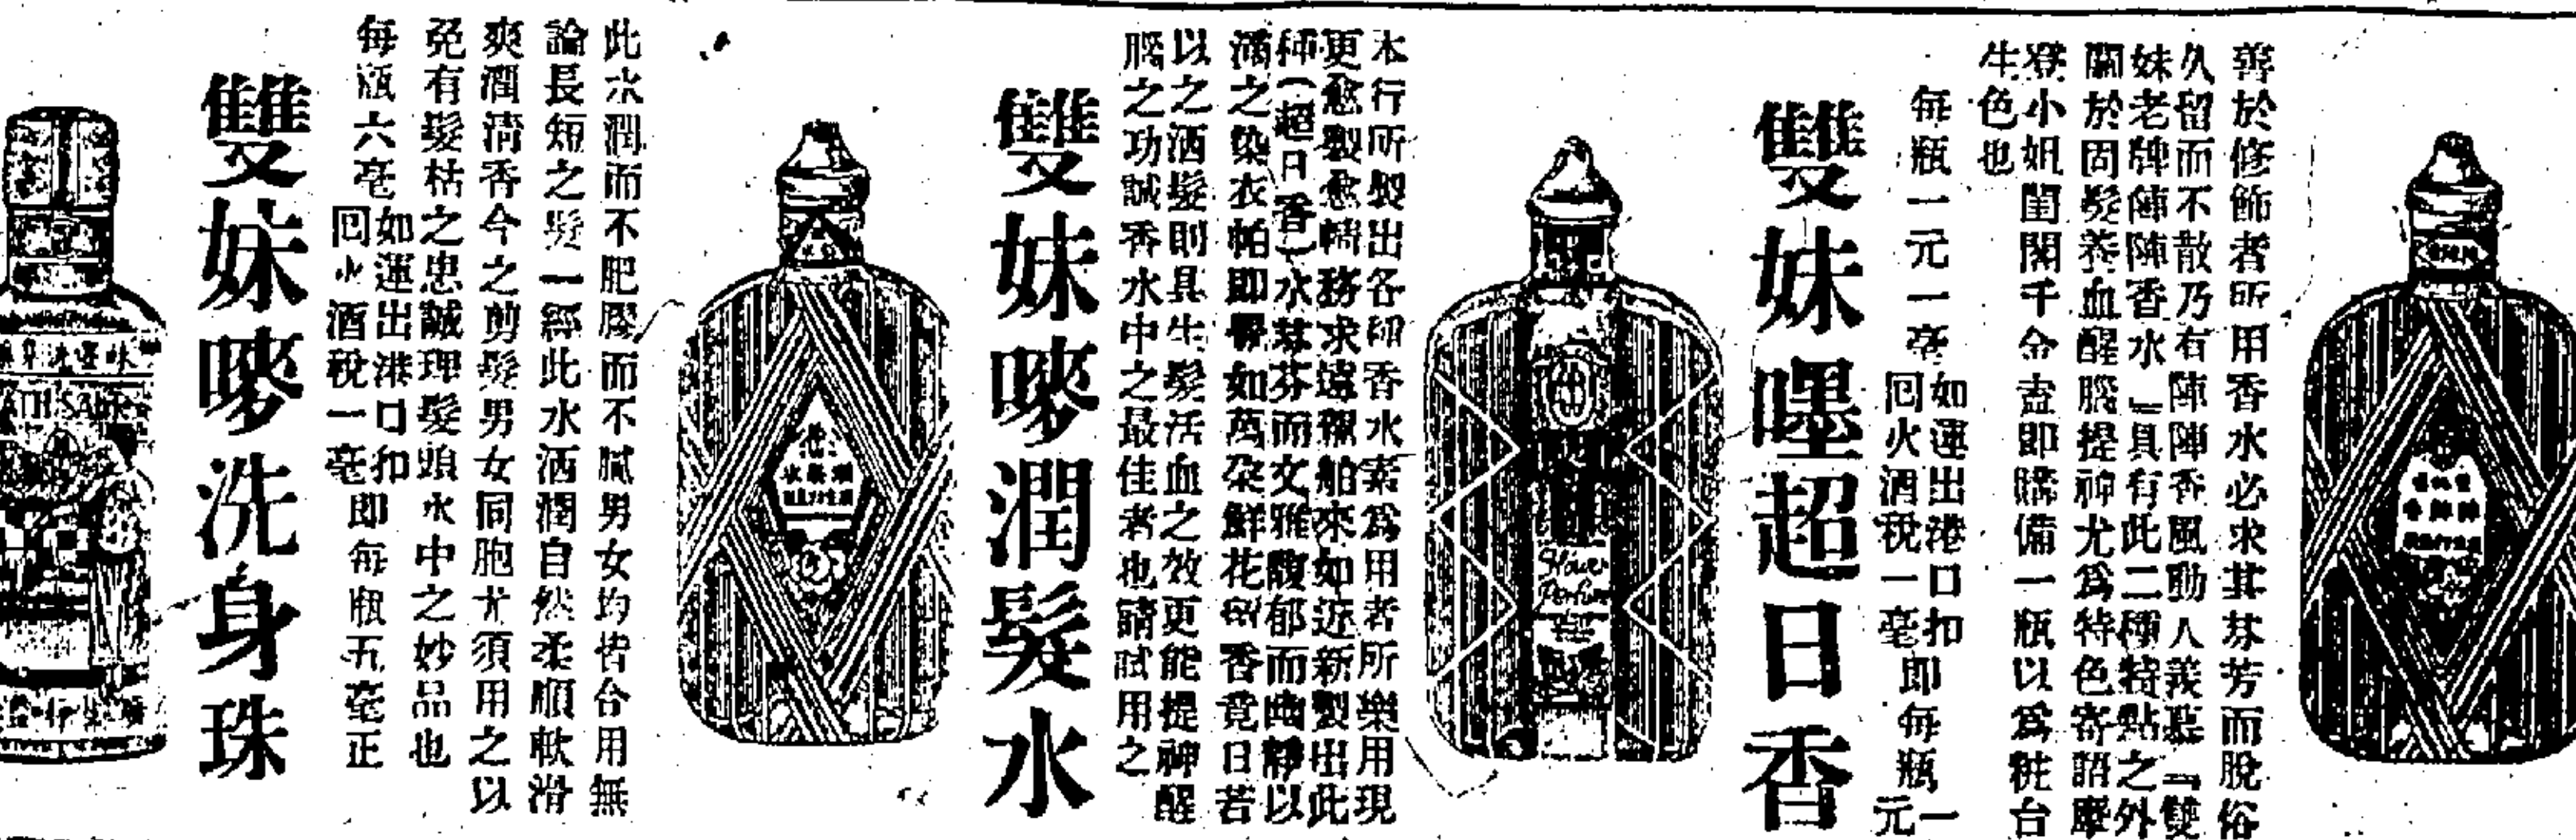 善於修飾者所用香水必求其芬芳而脫俗
久留而不散乃有陣陣香風動人羨慕『雙
妹老牌陣陣香水』具有此二種特點之外
關於固髮養血醒腦提神尤爲特色寄語摩
登小姐閨閣千金盍即購備一瓶以爲粧台
生色也
每瓶一元一毫
如運出港口扣
回火酒稅一毫
即每瓶一
元
雙妹嚜超日香
本行所製出各種香水素爲用者所樂用現
更愈製愈精務求遠襯舶來如近新製出此
種(超日香)水芬芬而文雅馥郁而幽靜以
滴之染衣帕即覺如萬朶鮮花留香竟日若
以之洒髮則具生髮活血之效更能提神醒
腦之功誠香水中之最佳者也請試用之
雙妹嘜潤髮水
此水潤而不肥膠而不膩男女均皆合用無
論長短之髮一經此水洒潤自然柔順軟滑
爽潤清香今之剪髮男女同胞尤須用之以
免有髮枯之患誠理髮頭水中之妙品也
每瓶六毫
如運出港口扣
回火酒稅一毫
即每瓶五毫正
雙妹嘜洗身珠